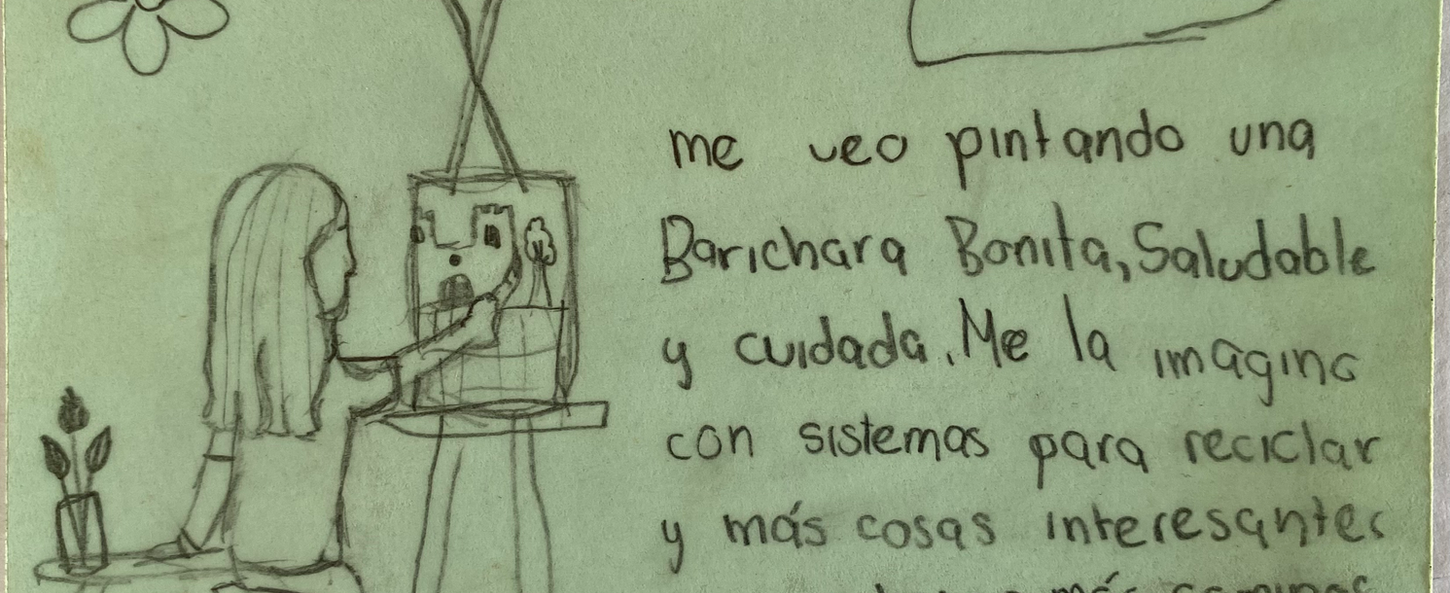 me veo pintando una
Barichara Bonita, Saludable
y cuidada. Me la imagino
con sistemas para reciclar
y más cosas interesantes
más